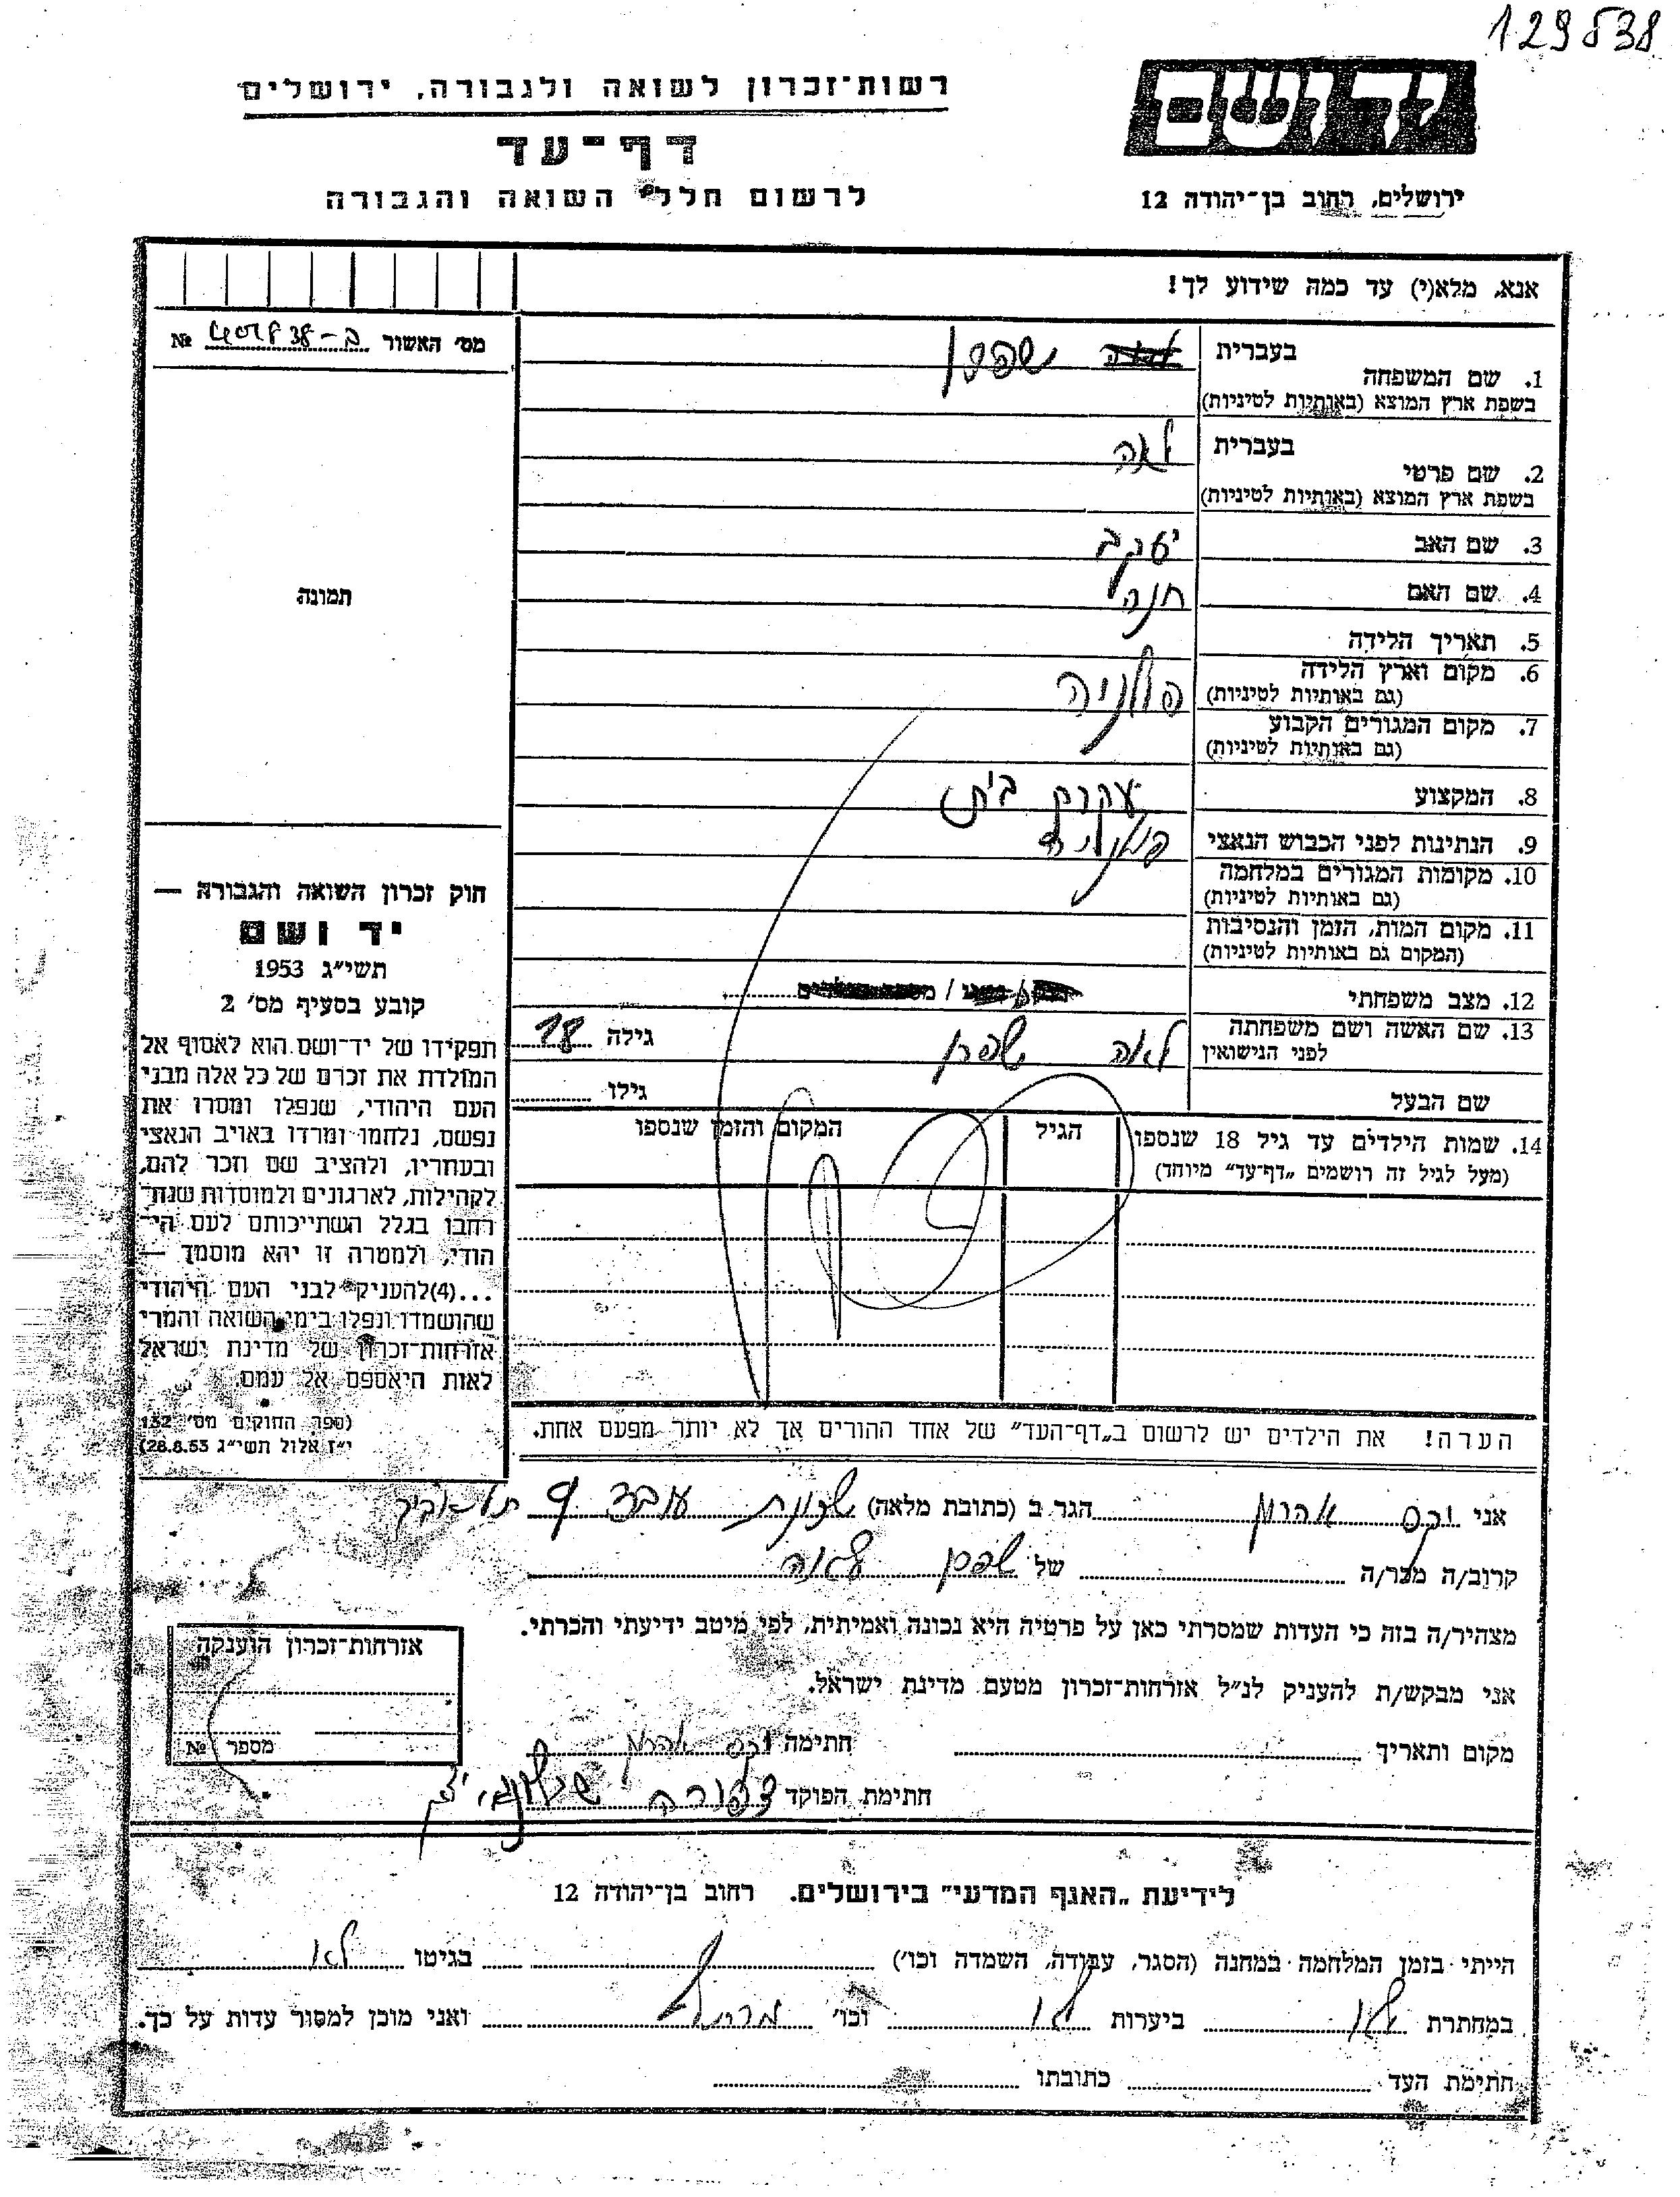 129538
רשות־זכרון לשואה ולגבורה, ירושלים
דף־עד
לרשום חללי השואה והגבורה
יד ושם
ירושלים, רחוב בן־יהודה 12
אנא, מלא(י) עד כמה שידוע לך!
מס' האשור № 
תמונה
1. שם המשפחה בעברית
בשפת ארץ המוצא (באותיות לטיניות)
2. שם פרטי בעברית לאה
בשפת ארץ המוצא (באותיות לטיניות)
3. שם האב יעקב
4. שם האם חנה
5. תאריך הלידה
6. מקום וארץ הלידה פולניה
(גם באותיות לטיניות)
7. מקום המגורים הקבוע
(גם באותיות לטיניות)
8. המקצוע עקרת בית
9. הנתינות לפני הכבוש הנאצי
10. מקומות המגורים במלחמה
(גם באותיות לטיניות)
11. מקום המות, הזמן והנסיבות
(המקום גם באותיות לטיניות)
12. מצב משפחתי
13. שם האשה ושם משפחתה לאה גילה 18
לפני הנישואין
שם הבעל גילו
14. שמות הילדים עד גיל 18 שנספו הגיל המקום והזמן שנספו
(מעל לגיל זה רושמים „דף־עד" מיוחד)
חוק זכרון השואה והגבורה —
יד ושם
תשי"ג 1953
קובע בסעיף מס' 2
תפקידו של יד־ושם הוא לאסוף אל
המולדת את זכרם של כל אלה מבני
העם היהודי, שנפלו ומסרו את
נפשם, נלחמו ומרדו באויב הנאצי
ובעוזריו, ולהציב שם וזכר להם,
לקהילות, לארגונים ולמוסדות שנח־
רבו בגלל השתייכותם לעם הי־
הודי, ולמטרה זו יהא מוסמך —
...(4) להעניק לבני העם היהודי
שהושמדו ונפלו בימי השואה והמרי
אזרחות־זכרון של מדינת ישראל
לאות היאספם אל עמם.
(ספר החוקים מס' 132
י"ז אלול תשי"ג 28.8.53)
הערה! את הילדים יש לרשום ב„דף־העד" של אחד ההורים אך לא יותר מפעם אחת.
אני וקס אהרון הגר ב (כתובת מלאה) שכונת עובד תל אביב
קרוב/ה מכר/ה של לאה
מצהיר/ה בזה כי העדות שמסרתי כאן על פרטיה היא נכונה ואמיתית, לפי מיטב ידיעתי והכרתי.
אני מבקש/ת להעניק לנ"ל אזרחות־זכרון מטעם מדינת ישראל.
מקום ותאריך חתימה וקס אהרון
חתימת הפוקד צפורה
אזרחות־זכרון הוענקה
מספר №
לידיעת „האגף המדעי" בירושלים. רחוב בן־יהודה 12
הייתי בזמן המלחמה במחנה (הסגר, עבודה, השמדה וכו') בגיטו לא
במחתרת לא ביערות לא וכו' ואני מוכן למסור עדות על כך.
חתימת העד כתובתו